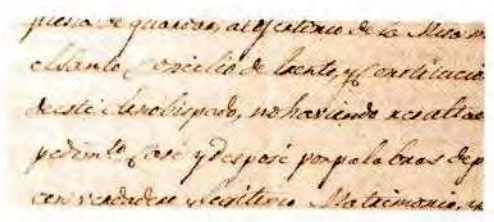 puesta de guardar, al ofertorio de la Misa
el Santo Concilio de trento, y Constitucio
de este Arzobispado, no haviendo resultad
pedim.to Casé y desposé por palabras de p
con verdadero y lexitimo Matrimonio,